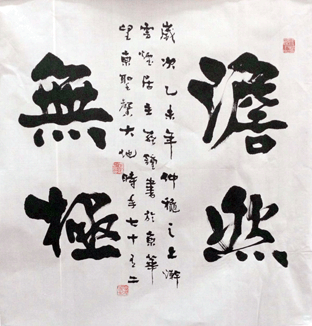 澹然
無極
歲次乙未年仲穐之上澣
居主鐘書於京華
望京聖馨大地時年七十有二